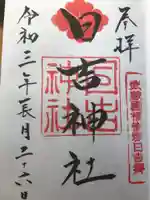 奉拝
日吉神社
日吉
神社
令和三年長月二十六日